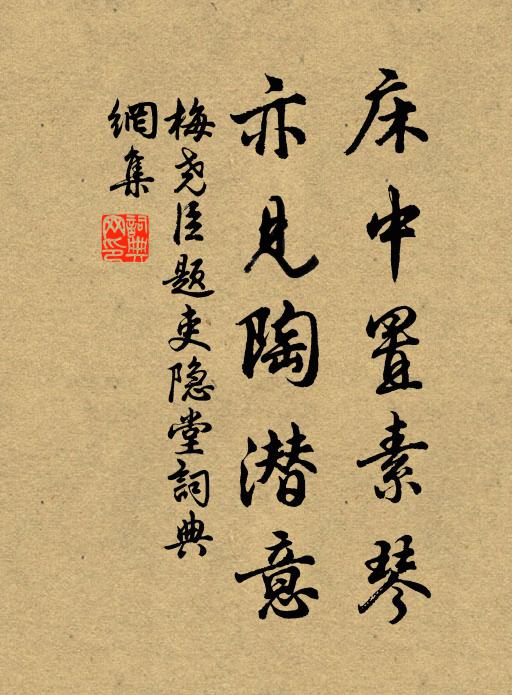 床中置素琴
亦见陶潜意
梅尧臣题吏隐堂詞典
網集
詞典
网印